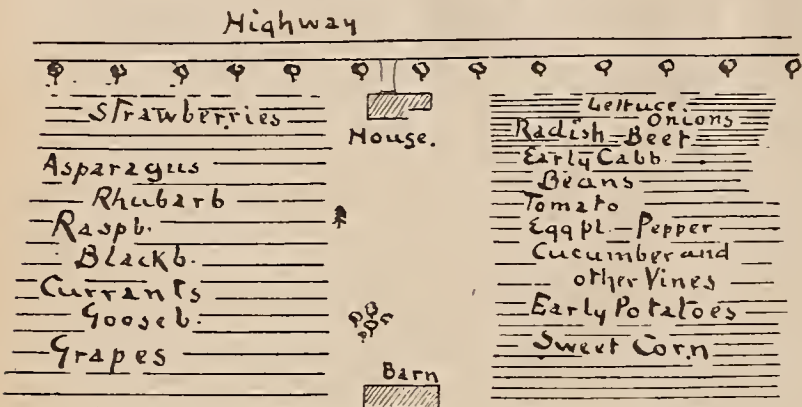 Highway
Strawberries
House.
Asparagus
Rhubarb
Raspb.
Blackb.
Currants
Gooseb.
Grapes
Barn
Lettuce.
Onions
Radish-Beet
Early Cabb.
Beans
Tomato
Eggpl.-Pepper
Cucumber and
other Vines
Early Potatoes
Sweet Corn